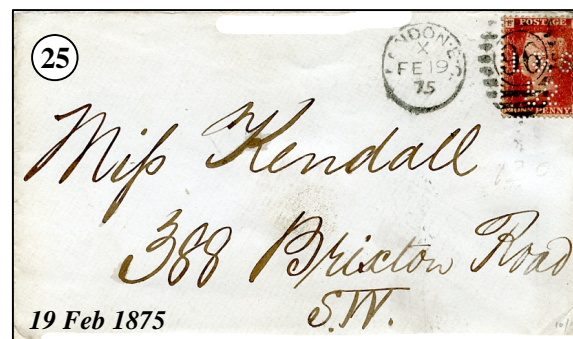 25
LONDON E.C.
X
FE 19
75
POSTAGE
86
PENNY
Miſs Kendall
388 Brixton Road
S.W.
19 Feb 1875